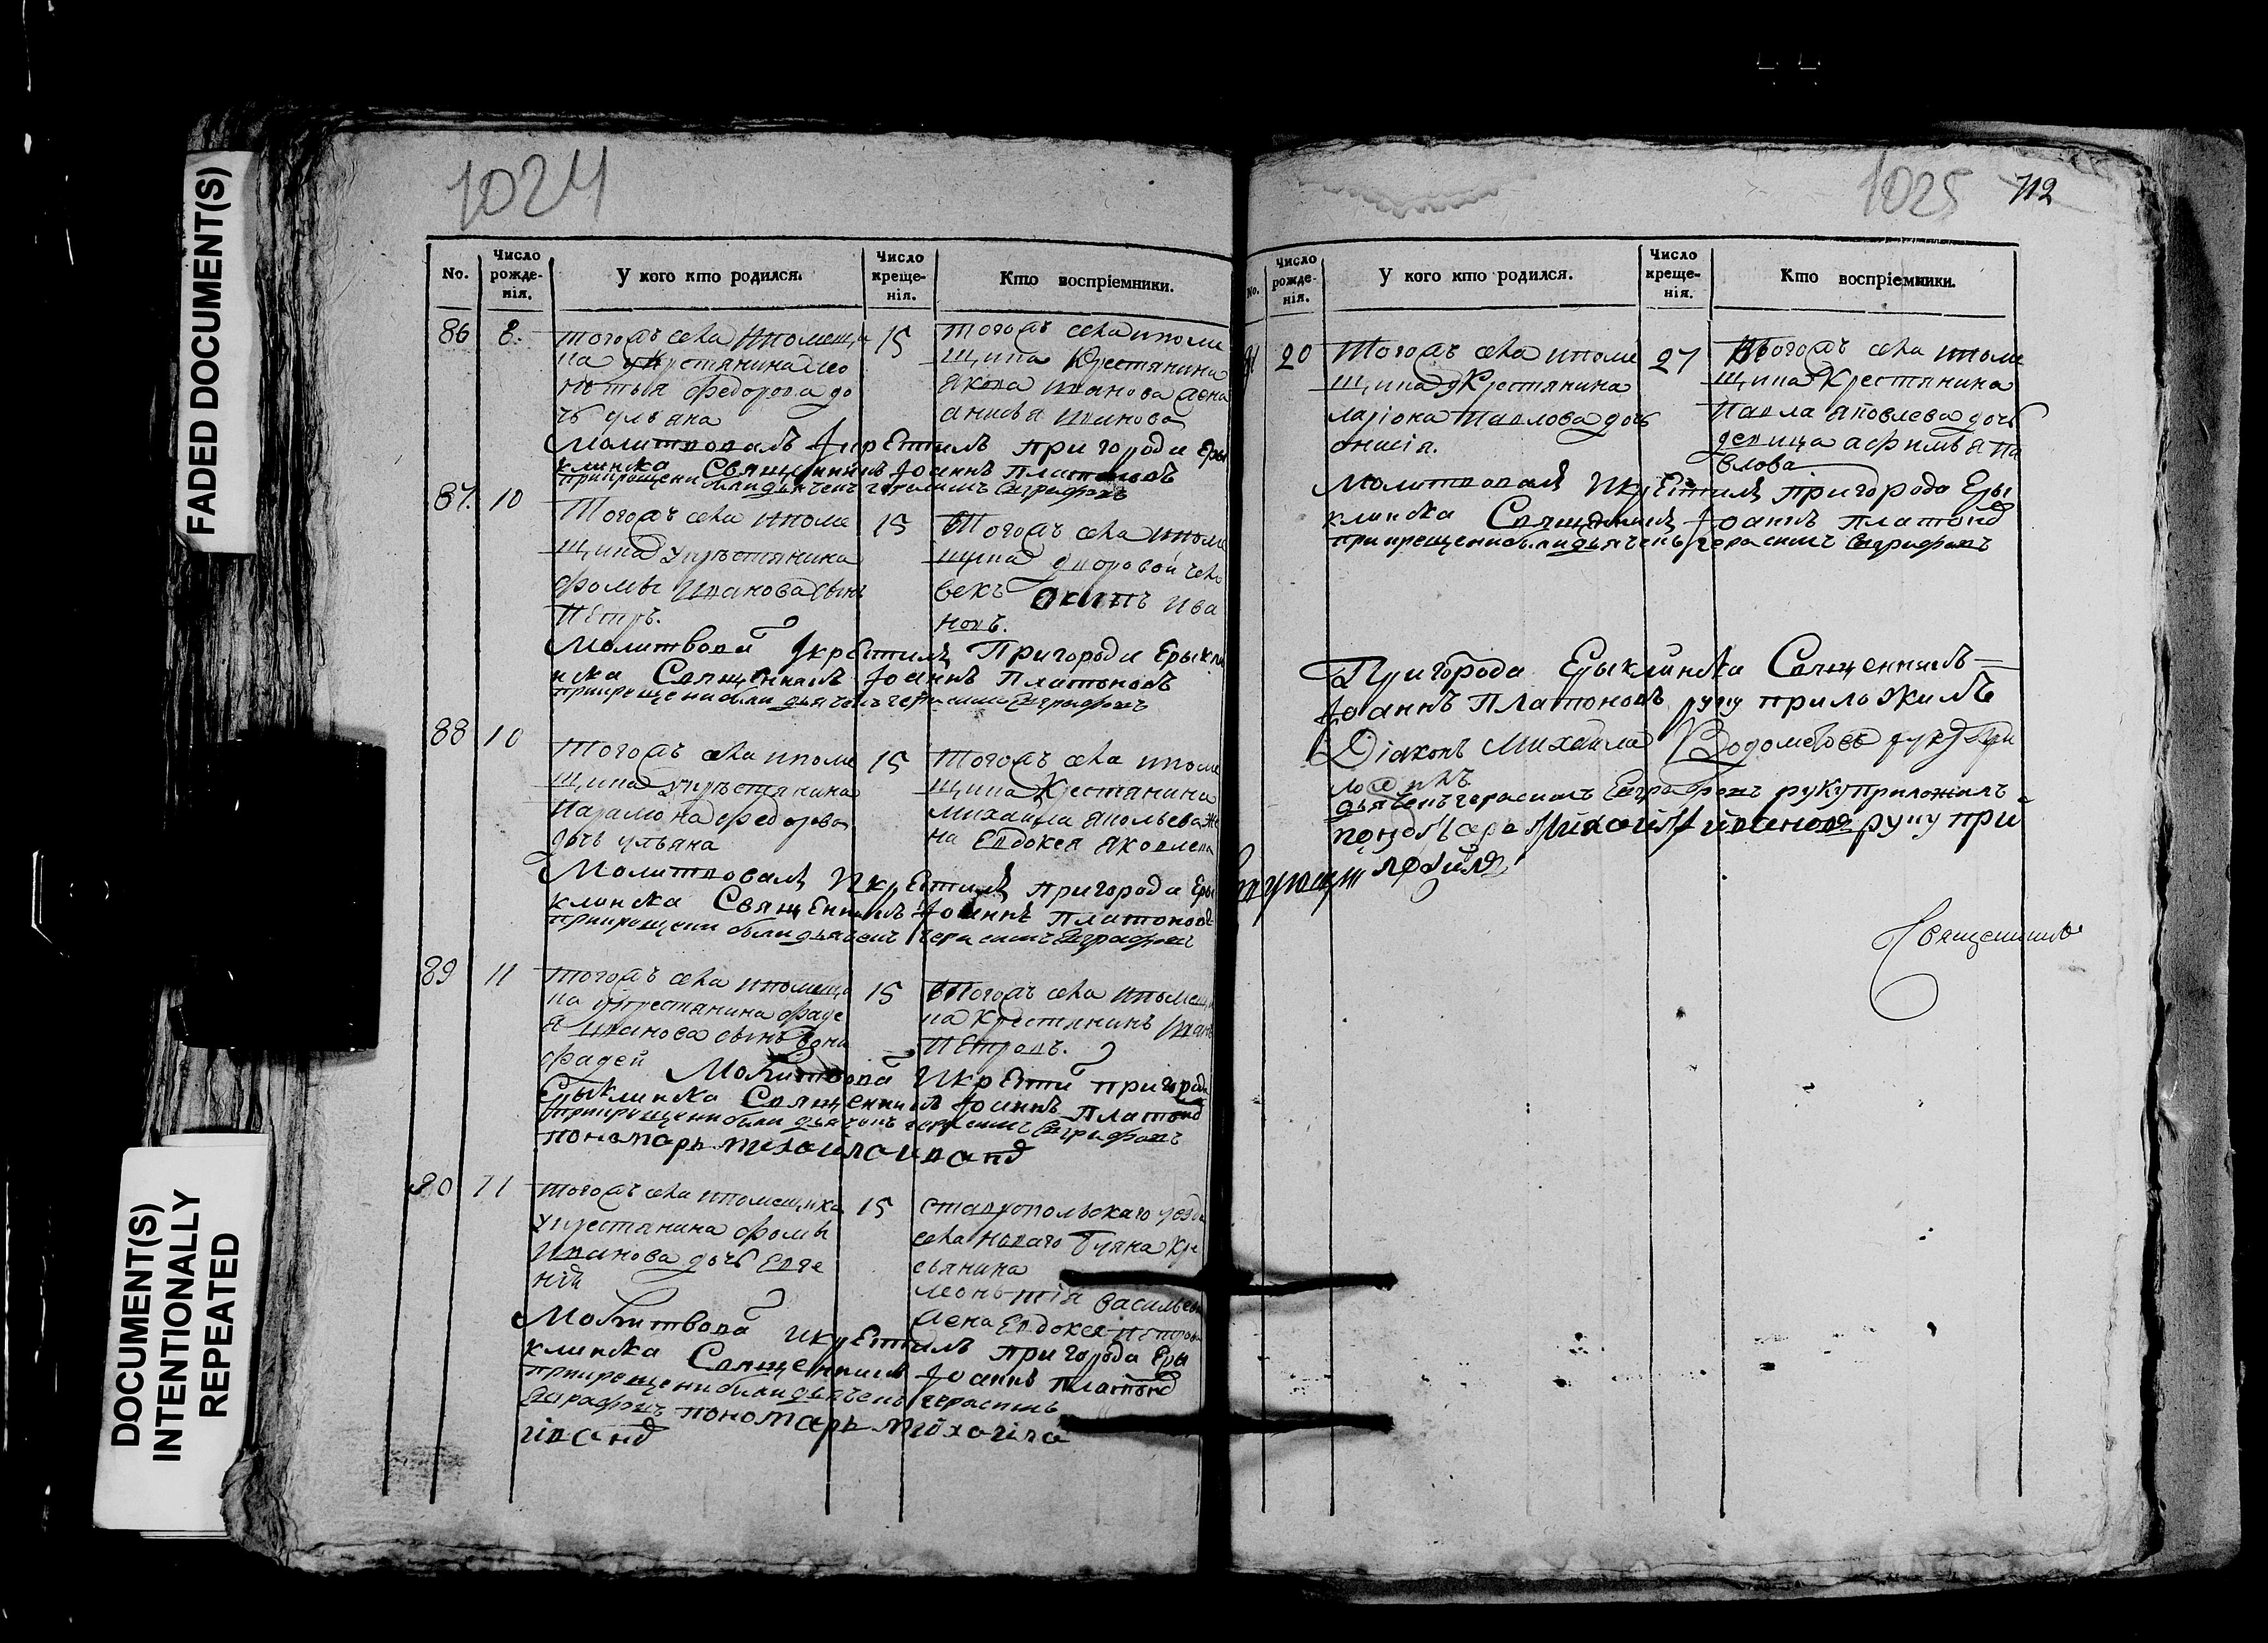 FADED DOCUMENT(S)
DOCUMENT(S)
INTENTIONALLY
REPEATED
1024
No.
Число рожде-нія.
У кого кто родился.
Число креще-нія.
Кто воспріемники.
86 8
тогожъ села помещи
ка у крестянина лео
нтья федорова до
чь ульяна
15
тогожъ села поме
щика крестянина
якова иванова жена
анисья иванова
Молитвовалъ и крѣстилъ пригорода Еры
клинска Священникъ Іоаннъ Платоновъ
при крещени были дьячекъ герасимъ Евграфовъ
87. 10
Тогожъ села поме
щика у крѣстянина
фомы Иванова сынъ
Пѣтръ.
15
Тогожъ села поме
щика дворовой чело
векъ Осипъ Ива
новъ.
Молитвова и крѣстилъ Пригорода Ерыкли
нска Священникъ Іоаннъ Платоновъ
при крещени были дьячекъ герасимъ Евграфовъ
88 10
Тогожъ села поме
щика у крѣстянина
Парамона федорова
дочь ульяна
15
Тогожъ села поме
щика Крестянина
Михайла Яковлева же
на Евдокея Яковлева
Молитвовалъ И крѣстилъ пригорода Еры
клинска Священникъ Іоаннъ Платоновъ
при крещени были дьячекъ герасимъ Евграфовъ
89 11
тогожъ села помещи
ка у крестянина фаде
я Иванова сынъ
фадей
15
Тогожъ села помещи
ка Крестянинъ Иванъ
Пѣтровъ.
Молитвова И крѣсти пригорода
Ерыклинска Священникъ Іоаннъ Платонов
при крещени были дьячекъ герасимъ Евграфовъ
пономарь михаила иванов
90 11
тогожъ села помещика
у крестянина фомы
Иванова дочь Евге
нія
15
ставропольскаго уезда
села новаго Буяна Кре
стьянина
леонтія васильева
жена Евдокея петрова
Молитвова и крѣстилъ пригорода Еры
клинска Священникъ Іоаннъ Платонов
при крещени были дьячекъ герасимъ
Евграфовъ пономарь михаила
иванов
1025
712
No.
Число рожде-нія.
У кого кто родился.
Число креще-нія.
Кто воспріемники.
91 20
Тогожъ села поме
щика у Крестянина
ларіона Павлова дочь
анисія.
27
Тогожъ села поме
щика Крестянина
Павла Яковлева дочь
девица афимья па
влова
Молитвовалъ И крѣстилъ пригорода Еры
клинска Священникъ Іоаннъ Платонов
при крещени были дьячекъ герасимъ Евграфовъ
Пригорода Ерыклинска Священникъ
Іоаннъ Платоновъ руку приложилъ
Діаконъ Михаила Водолетовъ руку при
ложилъ
дьячекъ герасимъ Евграфовъ руку приложилъ
пономарь Михаила Иванов руку при
ложилъ
Священникъ